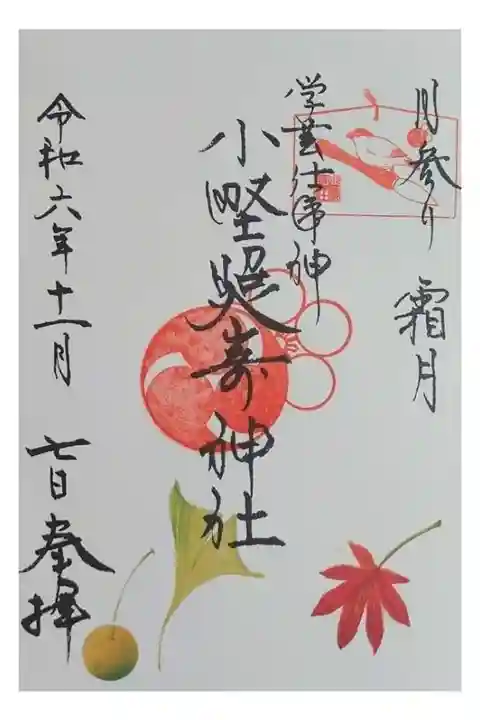 月参り 霜月
学芸仕事神
小野照嵜神社
令和六年十一月
七日奉拝